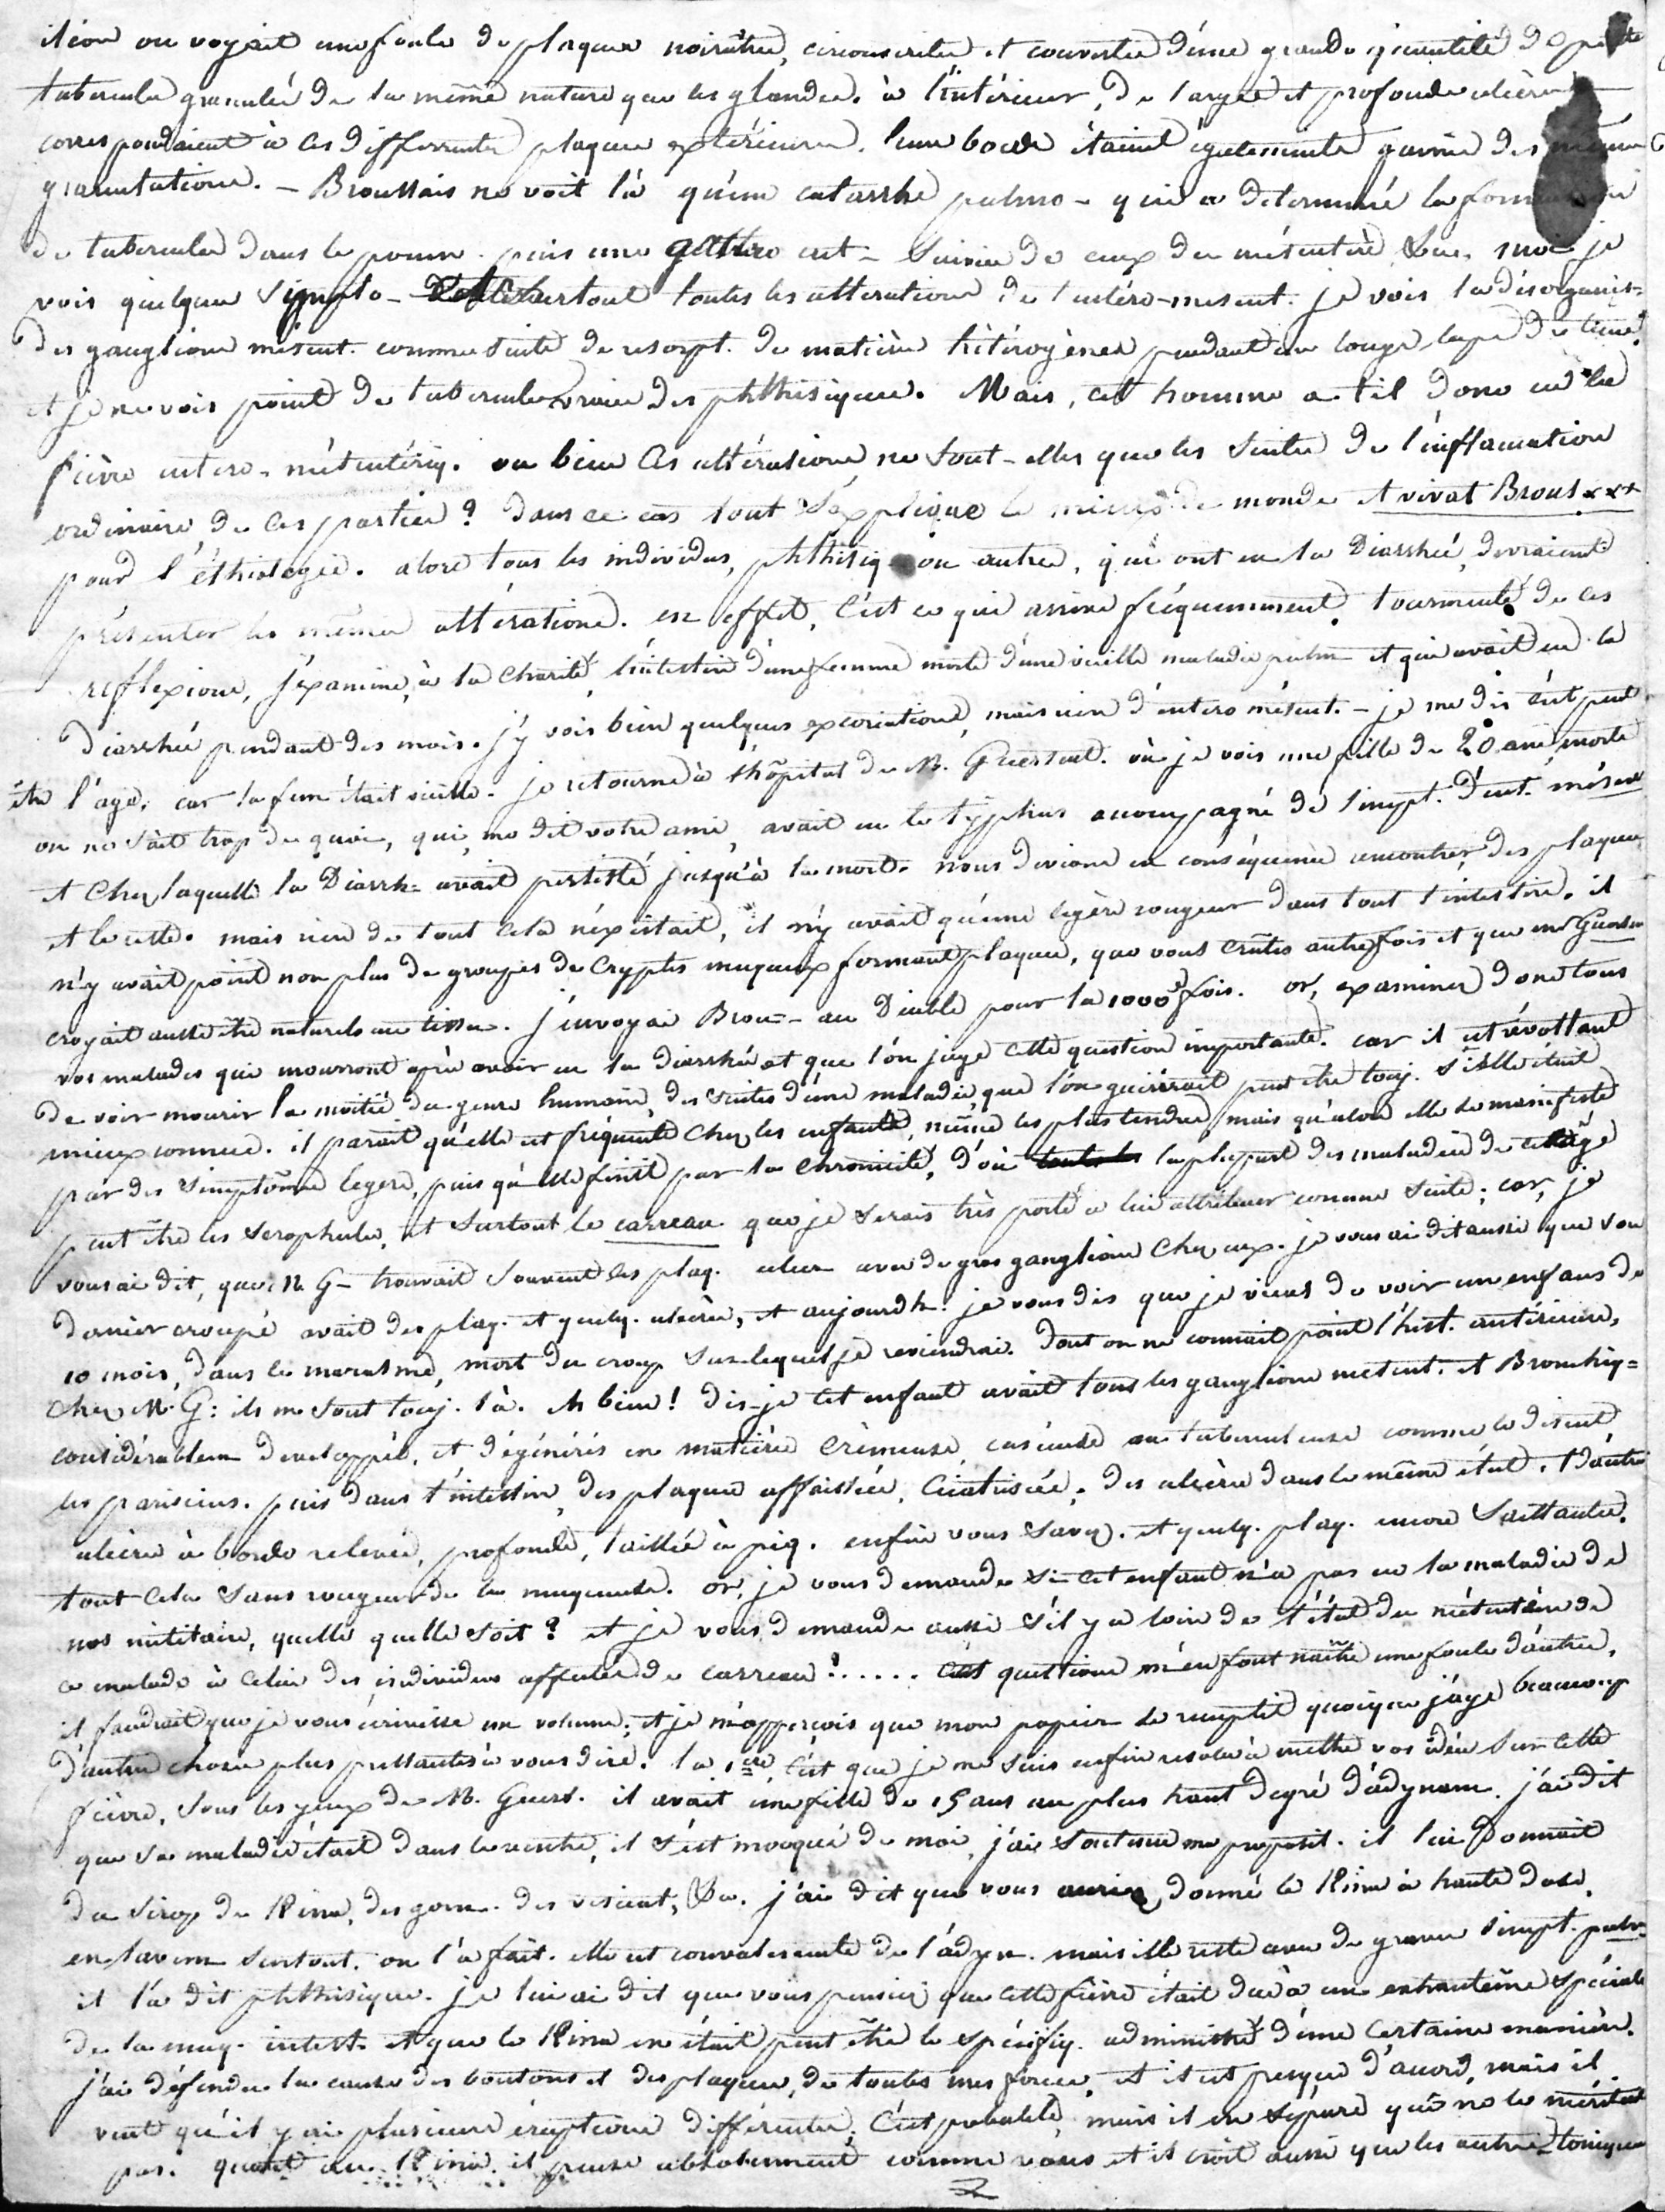 iléon on voyait une foule de plaques noirâtres, circonscrites et couvertes d'une grande quantité de
tubercules granulés de la même nature que les glandes. à l'intérieur, de larges et profonds ulcères
correspondaient à ces differentes plaques extérieures. leurs bords étaient égalements garnis des mêmes
granulations. – Broussais ne voit là qu'un catarrhe pulmo– qui a déterminé la formation
de tubercules dans le poumon. puis une gastro ent– suivie de ceux du mésentère &ca. moi je
vois quelques sympto– surtout toutes les altérations de l'entéro-mesent. je vois la désorganis=
des ganglions mésent. comme suite de resorpt. de matières hétérogènes pendant un long laps de tems.
et je ne vois point de tubercules vrais des phthisiques. Mais, cet homme a-t-il donc eu la
fièvre entero-mésentériq. ou bien ces altérations ne sont-elles que les suites de l'inflamation
ordinaire de ces parties ? dans ce cas tout s'explique le mieux du monde et vivat Brous xxx
pour l'éthiologie. alors tous les individus, phthisiq ou autres, qui ont eu la Diarrhée, devraient
présenter les mêmes altérations. en effet, c'est ce qui arrive fréquemment. tourmenté de ces
reflexions, j'examine, à la charité, l'intestin d'une femme morte d'une vieille maladie pulm– et qui avait eu la
diarrhée pendant des mois. j'y vois bien quelques excoriations, mais rien d'entero mésent. – je me dis c'est peut
être l'age, car la fem était vieille. je retourne à l'hôpital de M. Guersent. où je vois une fille de 20 ans morte
on ne sait trop de quoi, qui, me dit votre ami, avait eu le typhus accompagné de simpt. d'ent. mésent
et chez laquelle la Diarrh= avait persisté jusqu'à la mort. nous devions en conséquence rencontrer des plaques
et le reste. mais rien de tout cela n'existait, il n'y avait qu'une legère rougeur dans tout l'intestin. il
n'y avait point non plus de groupes de cryptes muqueux formant plaques, que vous crûtes autrefois et que Mr Guersen
croyait aussi être naturels au tissu. j'envoyai Brou– au Diable pour la 1000e fois. or, examinez donc tous
vos malades qui mourront après avoir eu la diarrhée et que l'on juge cette question importante. car il est révoltant
de voir mourir la moitié du genre humain, des suites d'une maladie que l'on guérirait peut être touj. si elle était
mieux connue. il parait qu'elle est fréquente chez les enfants, même les plus tendres, mais qu'alors elle se manifeste
par des simptômes legers, puis qu'elle finit par la chronicité, d'où la plupart des maladies de cet âge
peut être les scrophules, et surtout le carreau que je serais très porté à lui attribuer comme suite; car, je
vous ai dit, que M. G– trouvait souvent les plaq. ulcer avec de gros ganglions chez eux. je vous ai dit aussi que son
dernier croupé avait des plaq. et quelq. ulcères, et aujourdh. je vous dis que je viens de voir un enfans de
10 mois, dans le marasme, mort du croup sur lequel je reviendrai. dont on ne connait point l'hist. antérieure,
chez M. G: ils me sont touj. là. eh bien ! dis-je cet enfant avait tous les ganglions mesent. et Bronchiq=
considérablem developpés, et dégénérés en matière crèmeuse, caséeuse ou tuberculeuse comme le disent
les parisiens. puis dans l'intestin, des plaques affaissées, cicatrisées, des ulcères dans le même état. d'autres
ulcères à bords relevés, profonds, taillés à piq. enfin vous savez. et quelq. plaq. encore saillantes.
tout cela sans rougeur de la muqueuse. or, je vous demande si cet enfant n'a pas eu la maladie de
nos militaires, quelle quelle soit ? et je vous demande aussi s'il y a loin de l'état du mésentère de
ce malade à celui des individus affectés de carreau ?..... cest questions m'en font naître une foule d'autres,
il faudrait que je vous écrivisse un volume; et je m'apperçois que mon papier se remplit quoique j'aye beaucoup
d'autres choses plus pressantes à vous dire. la 1ère, c'est que je me suis enfin resolu à mettre vos idées sur cette
fièvre, sous les yeux de M. Guers. il avait une fille de 15 ans au plus haut degré d'adynam. j'ai dit
que sa maladie était dans le ventre, il s'est moqué de moi, j'ai soutenu mon proposit. il lui donnait
du sirop de Kina, des gom. des vesicat, &a. j'ai dit que vous auriez donné le Kina à haute dose,
en lavem surtout. on l'a fait. elle est convalescente de l'adyn. mais elle reste avec de graves simpt. pulm
il l'a dit phthisique. je lui ai dit que vous pensiez que cette fièvre était due à un exhantème spécial
de la muq. intest. et que le Kina en était peut être le spécifiq. administré d'une certaine manière.
j'ai défendu la cause des boutons et des plaques, de toutes mes forces, et il est presque d'accord, mais il
veut qu'il y ai plusieurs éruptions différentes. c'est probable, mais il en sépare qui ne le méritent
pas. quant au Kina il pense absolument comme vous et il croit aussi que les autres toniques